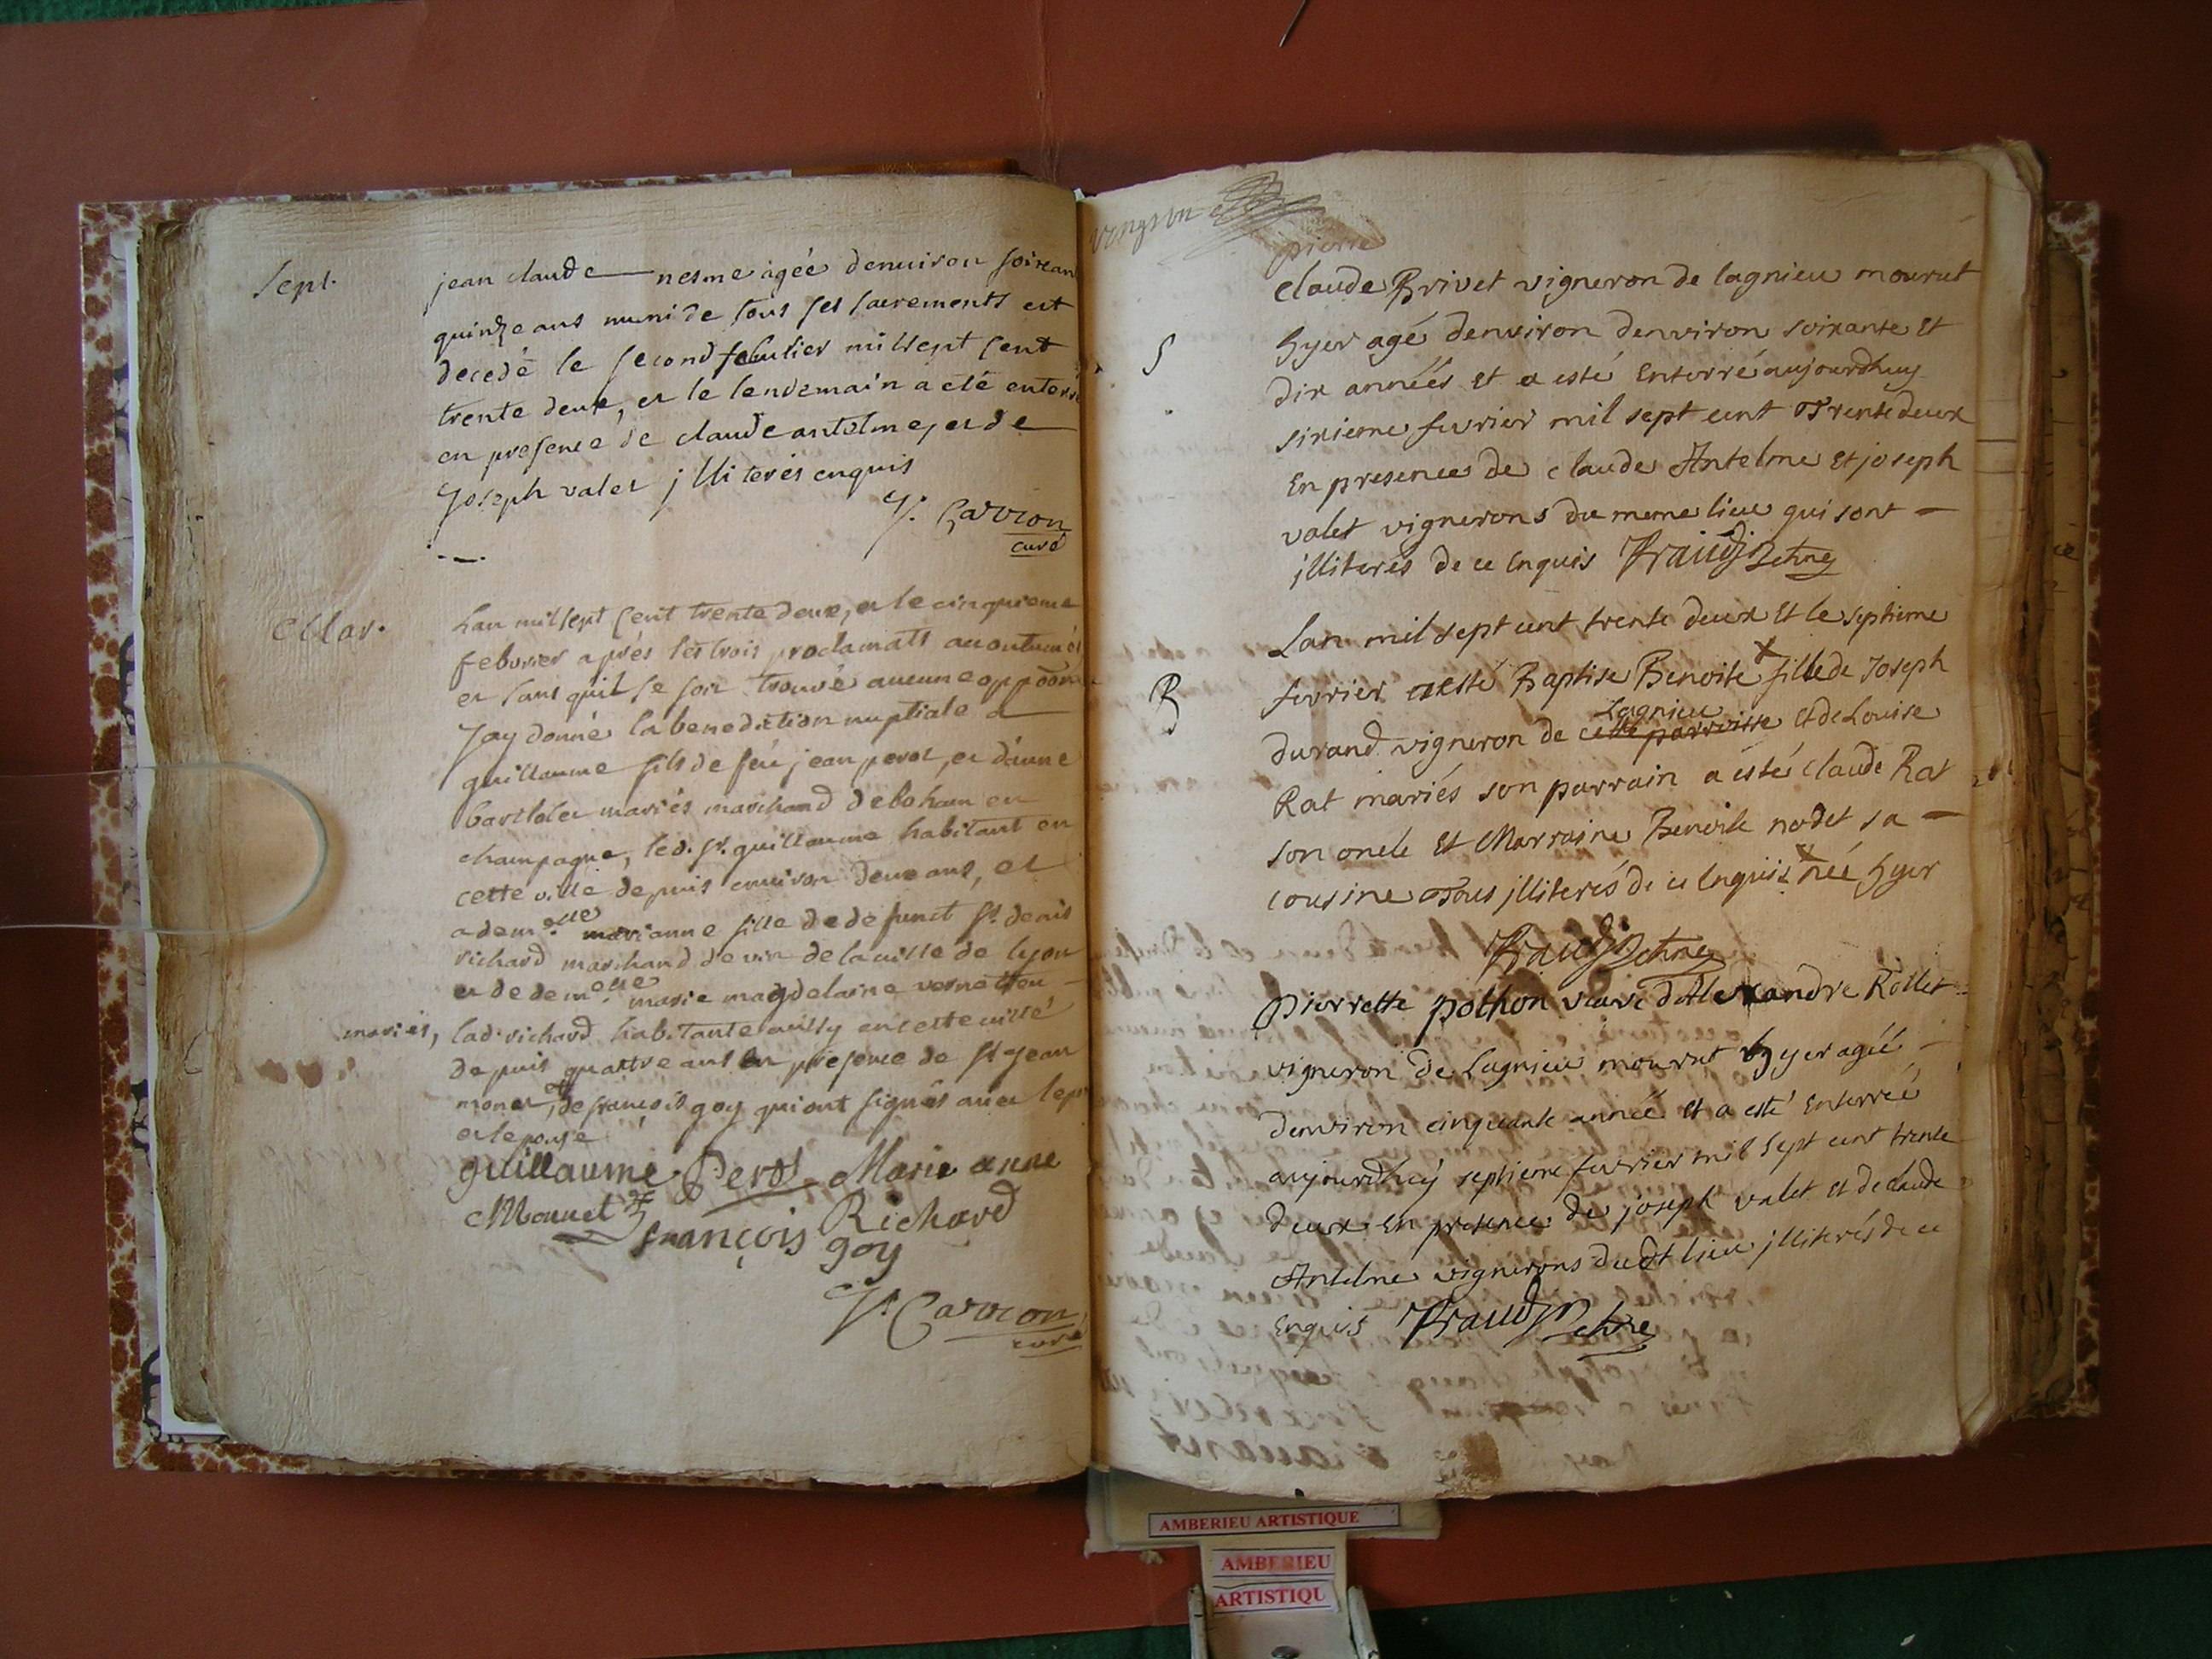 Sept.
jean claude — nesme agée denuiron soixan
quinze ans muni de tous ses sacrements est
decedé le second feburier mil sept cent
trente deux, et le lendemain a eté enterré
en presence de claude antelme, et de
Joseph valet jlliterés enquis
J. Carron
curé
Mar.
Lan mil sept cent trente deux, et le cinquieme
feburier aprés les trois proclamats accoutumés
et sans quil se soit trouvé aucune
Jay donné la benediction nuptiale a
guillaume fils de feu jean perot, et d'anne
marchand de en
champagne, led. sr. guillaume habitant en
cette ville depuis environ deux ans, et
a demelle marianne fille de defunct sr. denis
richard marchand de vin de la ville de lyon
et de demelle marie magdelaine
mariés, lad. richard habitante aussy en cette ville
depuis quattre ans en presence de sr jean
monet, et de françois goy qui ont signés avec lep
et lepouse
guillaume Perot Marie anne
Monnet Richard
françois goy
J. Carron
curé
vingt un
pierre
claude Brivet vigneron de lagnieu mourut
S
hyer agé denviron denviron soixante et
dix années et a esté Enterré aujourdhuy
sixieme fevrier mil sept cent Trente deux
En presence de claude Antelme et joseph
valet vignerons du meme lieu qui sont —
jlliterés de ce Enquis
Lan mil sept cent trente deux Et le septieme
B
fevrier a esté Baptise Benoite x fille de Joseph
Lagnieu
durand vigneron de cette parroisse et de Louise
Rat mariés son parrain a esté claude Rat
son oncle Et Marraine Benoite nodet sa —
cousine Tous jlliterés de ce Enquis x née hyer
Pierrette pothon veuve d'Alexandre Rollet
vigneron de Lagnieu mourut hyer agée
denviron cinquante année Et a esté Enterrée
aujourdhuy septieme fevrier mil sept cent trente
deux En presence de joseph valet et de claude
Antelme vignerons dudt lieu jlliterés de ce
Enquis
AMBERIEU ARTISTIQUE
AMBERIEU
ARTISTIQU